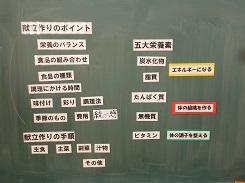 献立作りのポイント
栄養のバランス
食品の組み合わせ
食品の種類
調理にかける時間
味付け 彩り 調理法
季節のもの 費用
献立作りの手順
主食 主菜 副菜 汁物
その他
五大栄養素
炭水化物
脂質
エネルギーになる
たんぱく質
無機質
体の組織を作る
ビタミン
体の調子を整える